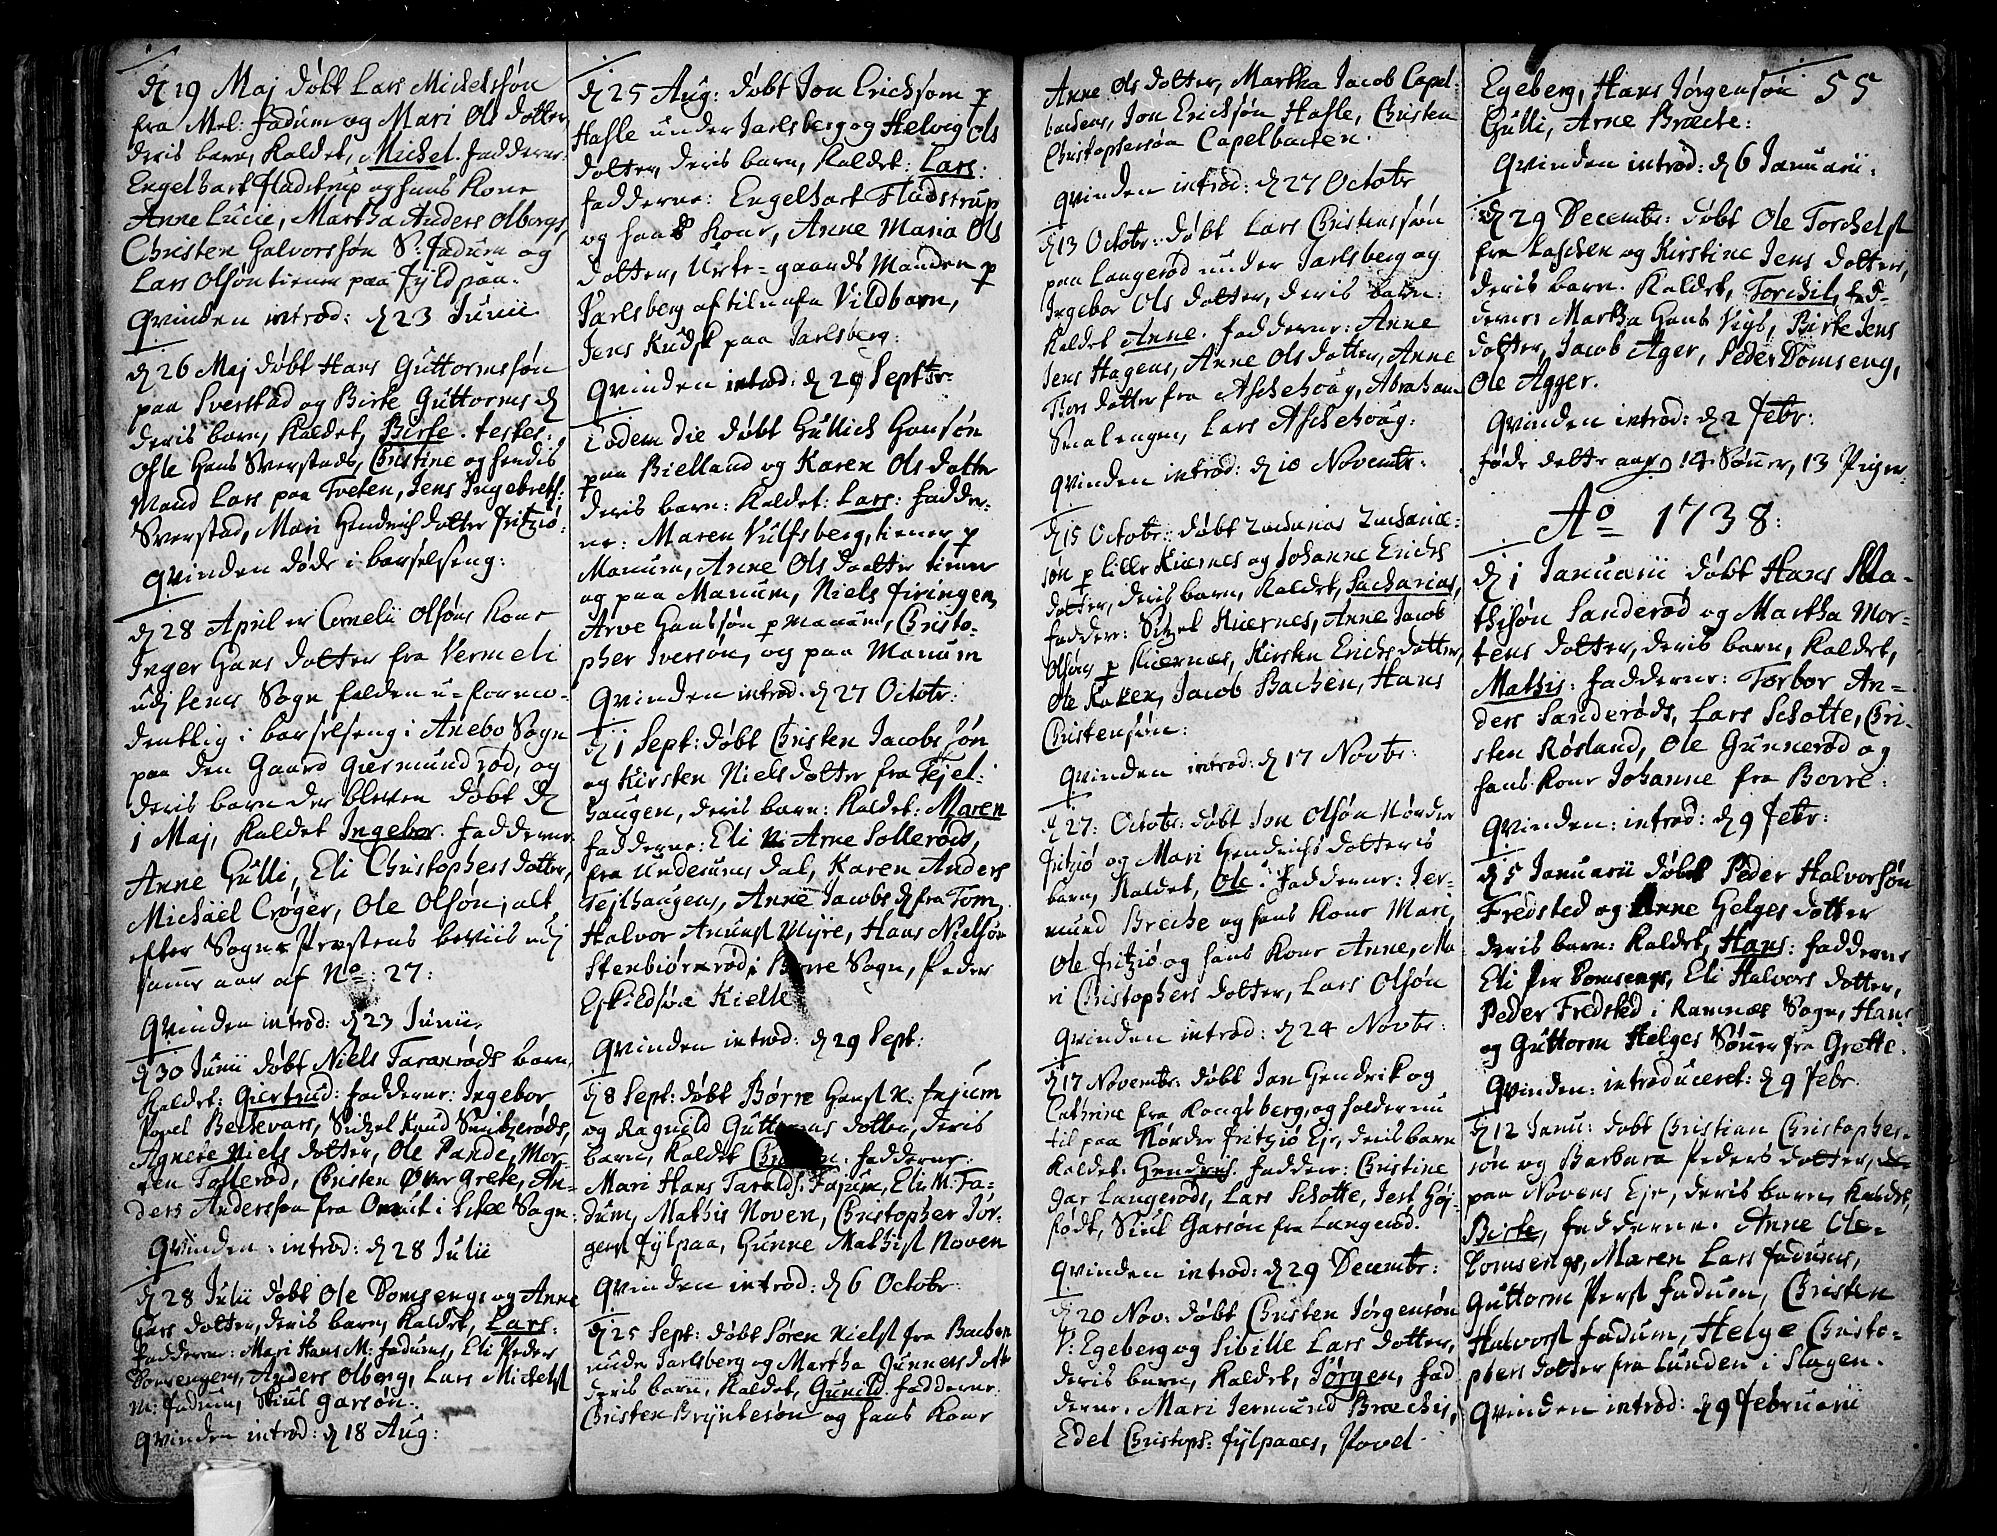 d 19 Maj døbt Lars Michelsøn
fra Mel: fadum og Mari Ols dotter,
deris barn, kaldet, Michel. fadderne:
Engelhart fladstrup og hans kone
Anne Lucie, Martha Anders Olbergs,
Christen Halvorssøn S: fadum og
Lars Olsøn tiener paa fylpaa.
Qvinden introd: d 23 Junii
d 26 Maj døbt Hans Guttormsøn
paa Sverstad og Birte Guttorms d
deris barn, kaldet, Birte. testes:
Hans Sverstads, Christine og hendis
Mand Lars paa Tveten, Jens Ingebrets:
Sverstad, Mari Hendrichsdotter fritziø.
Qvinden døde i barselseng:
d 28 April er Cornelii Olsøns kone
Inger Hans dotter fra Vermeli
udj Sems Sogn falden u-formo-
dentlig i barselseng i Anebo Sogn
paa den Gaard Giermundrød, og
deris barn der bleven døbt d
1 Maj, kaldet Ingebor. fadderne
Anne Gulli, Eli Christophers dotter,
Michael Crøger, Ole Olsøn, alt
efter Sogne Præstens beviis udj
samme aar af No: 27:
Qvinden introd: d 23 Junii.
d 30 Junii døbt Niels Taranrøds barn,
kaldet: Giertrud: fadderne: Ingebor
Povel Beckevars, Sidzel Knud Smitzrøds,
Agnete Niels dotter, Ole Pande, Mor-
ten Tofterød, Christen Øvre Grete, An-
ders Andersøn fra i Sogn:
Qvinden: introd: d 28 Julii
d 28 Julii døbt Ole Domsengs og Anne
Lars dotter, deris barn, kaldet, Lars:
fadderne: Mari Hans M: fadums, Eli Peder
Domsengens, Anders Olberg, Lars Michelst
M: fadum, Skiul garsøn.
Qvinden introd: d 18 Aug:
d 25 Aug: døbt Jon Ericksøn p
Hasle under Jarlsberg og Helvig Ols
dotter, deris barn, kaldet: Lars:
fadderne: Engelhart Fladstrup
og hans kone, Anne Maria Ols
dotter, Urte-gaards Manden p
Jarlsberg Vildbarn,
Jens Kudsk paa Jarlsberg:
Qvinden introd: d 29 Septbr
Eodem die døbt Gullich Hansøn
paa Bielland og Karen Ols dotter
deris barn: kaldet: Lars: fadder-
ne: Maren Vulfsberg, tiener p
Manum, Anne Ols dotter tiener
og paa Manum, Niels firingen,
Arve Hanssøn p Manum, Christo-
pher Iversøn, og paa Manum
Qvinden introd: d 27 Octobr:
d 1 Sept: døbt Christen Jacobssøn
og Kirsten Nielsdotter fra Tejel-
haugen, deris barn: kaldet: Maren
fadderne: Eli Arne Sollerøds,
fra Undersums dal, Karen Anders
Tejlhaugens, Anne Jacobs d fra Tom,
Halvor Amunst Myre, Hans Nielsøn
Stenbiørnrød i Borre Sogn, Peder
Eskildsøn Kielle
Qvinden introd: d 29 Sept:
d 8 Sept: døbt Børre Hanst N: fejum
og Ragnild Guttorms dotter, deris
barn, kaldet: fadderne:
Mari Hans Faralds: Fajum, Eli M. Fa-
dum, Mathis Noven, Christopher Jør-
genst fylpaa, Gunne Mathisst Noven
Qvinden introd: d 6 Octobr.
d 25 Sept: døbt Søren Nielst fra Backen
under Jarlsberg og Martha Gunners dott
deris barn, kaldet, Gunild. fadderne:
Christen Bryntesøn og hans kone
Anne Ols dotter, Martha Jacob Capel-
backens, Jon Ericksøn Hasle, Christen
Christophersøn Capelbacken.
Qvinden introd: d 27 Octobr
d 13 Octobr: døbt Lars Christenssøn
paa Langerød under Jarlsberg og
Ingebor Ols dotter, deris barn:
kaldet Anne. fadderne: Anne
Jens Hagens, Anne Olsdotter, Anne
Tors dotter fra Askehoug, Abraham
Smalengen, Lars Askehoug:
Qvinden introd: d 10 Novembr:
d 15 Octobr: døbt Zacharias Zacharia-
søn p lille Kiernes og Johanne Erichs
dotter, deris barn, kaldet, Zacharias,
fadder: Sidzel Kiernes, Anne Jacob
Olsøns p Kiernes, Kirsten Erichs dotter,
Ole Raken, Jacob Backen, Hans
Christensøn:
Qvinden introd: d 17 Novbr:
d 27: Octobr: døbt Jon Olsøn Nørder
fritziø og Mari Hendrichs dotteris
barn, kaldet, Ole: fadderne: Jer-
mund Breche og hans kone Mari,
Ole fritziø og hans kone Anne, Ma
ri Christophers dotter, Lars Olsøn
Qvinden introd: d 24 Novbr:
d 17 Novembr: døbt Jan Hendrik og
Cathrine fra Kongsberg, og holder nu
til paa Nørder fritziø Eje, deris barn
kaldet: Hendric. fadder: Christine
Gar Langerøds, Lars Schotte, Jest Høj-
födt, Skiul Garsøn fra Langerød.
Qvinden introd: d 29 Decembr:
d 20 Nov: døbt Christen Jørgensøn
V: Egeberg og Sibille Lars dotter,
deris barn, kaldet, Jørgen, fad
derne: Mari Jermund Brechis,
Edel Christoph: fylpaaes, Povel
Egeberg, Hans Jørgensøn 55
Gulli, Arne Brecke:
Qvinden introd: d 6 Januarii:
d 29 Decembr: døbt Ole Torchelst
fra Laschen og Kirstine Jens dotter,
deris barn. kaldet, Torchil, fad-
derne: Martha Hans Vigs, Birte Jens
dotter, Jacob Ager, Peder Domseng,
Ole Agger.
Qvinden introd: d 2 febr:
føde dette aar, 14 Sønner, 13 Piger
Ao 1738:
d 1 Januarii døbt Hans Ma-
thisøn Sanderød og Martha Mor-
tens dotter, deris barn, kaldet,
Mathis: fadderne: Torbor An-
ders Sanderøds, Lars Schotte, Chri-
sten Røsland, Ole Gunnerød og
hans kone Johanne fra Borre:
Qvinden: introd: d 9 febr:
d 5 Januarii døbt Peder Halvorsøn
Fredsted og Anne Helges dotter
deris barn: kaldet, Hans: fadderne
Eli Per Domsengs, Eli Halvors dotter,
Peder Fredsted i Ramnæs Sogn, Hans
og Guttorm Helges Sønner fra Grette.
Qvinden: introduceret: d 9 febr.
d 12 Janu: døbt Christian Christopher-
søn og Barbara Peders dotter,
paa Novens Eje, deris barn, kaldet,
Birte, fadderne. Anne Ole-
Domsengs, Maren Lars fadums,
Guttorm Perst fadum, Christen
Halvorst fadum, Helge Christo-
phers dotter fra Lunden i Slagen.
Qvinden introd: d 9 februarii